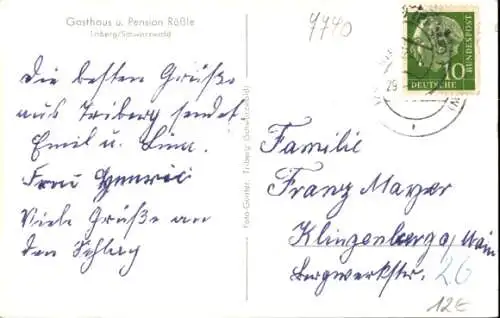 Gasthaus u. Pension Rößle
Triberg/Schwarzwald
7740
Die besten Grüße
aus Triberg sendet
Emil u.
Frau
Viele Grüße an
den
Foto-Guoter, Triberg (Schwarzwald)
10
DEUTSCHE BUNDESPOST
29
Familie
Franz Mayer
Klingenberg a/Main
Bergwerkstr. 26
12€